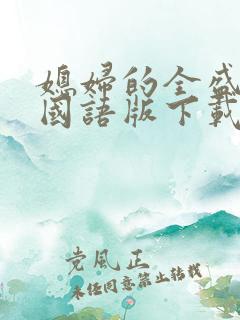 媳婦的全盛
國語版下載
党風正
未径同意禁止转载